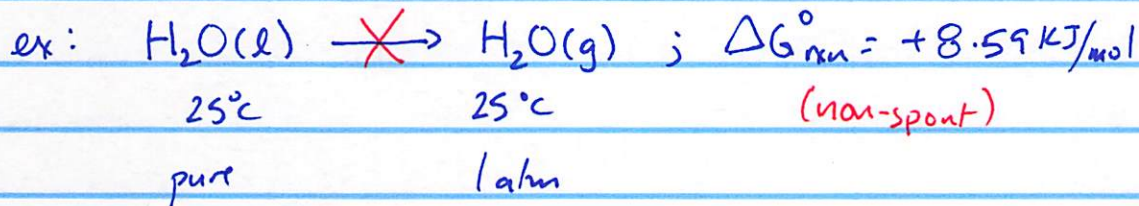 ex: H₂O(l) ⟶ H₂O(g) ; ΔG°rxn = +8.59 KJ/mol
25°C 25°C (non-spont)
pure 1 atm